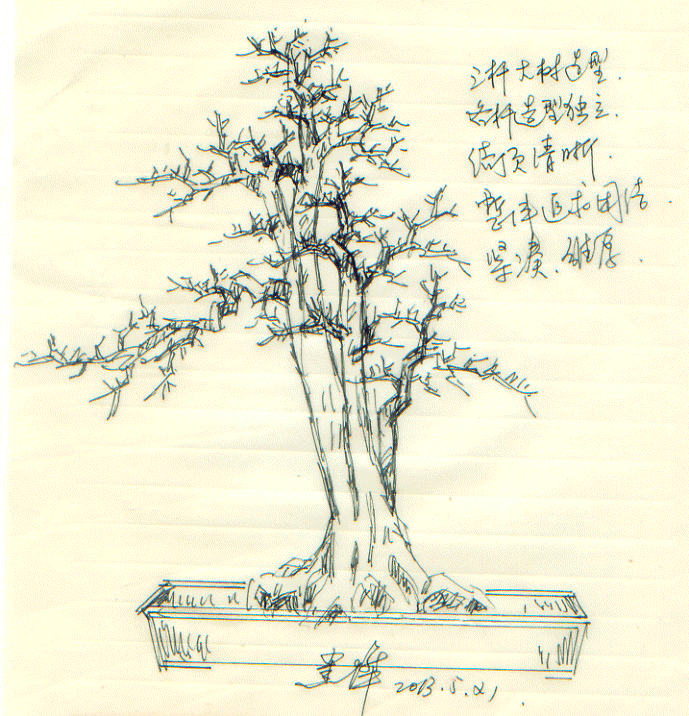 三杆大树造型.
各杆造型独立.
结顶清晰.
整体追求团结
紧凑、雄厚.
2013.5.21,